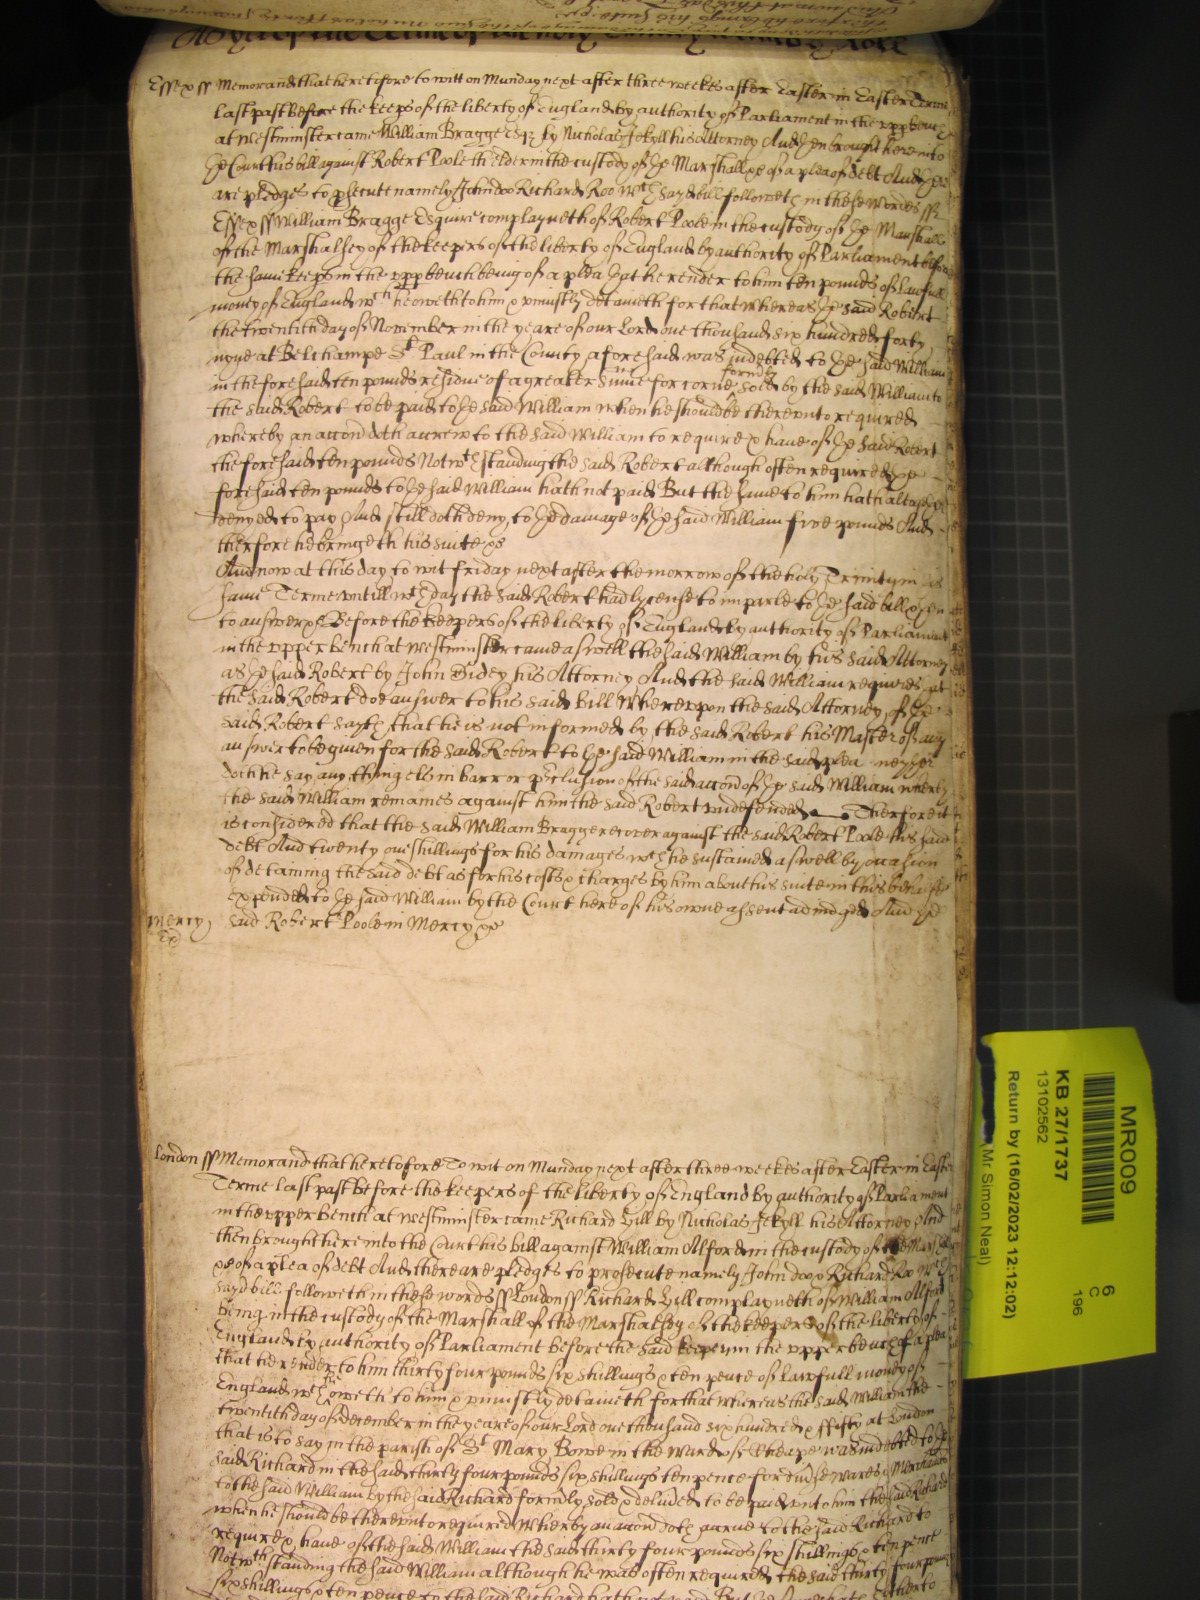 As yet of the Terme of the holy Trinity Witnes by Rolle
Essex ss Memorand that heretofore to witt on Munday next after three weekes after Easter in Easter Terme
last past before the keeps of the liberty of England by authority of Parliament in the upp bench
at Westminster came William Bragge Esqr by Nicholas Jekyll his Attorney And then brought here into
ye Court his bill against Robert Poole th elder in the custody of ye Marshall &c of a plea of debt And yr
are pledges to psecute namely John doo Richard Roo wch sayd bill followeth in these words ss
Essex ss William Bragge Esquire complayneth of Robert Poole in the custody of ye Marshall
of the Marshalsey of the keepers of the liberty of England by authority of Parliament before
the same keeps in the upp bench being of a plea yt he render to him ten pounds of lawfull
money of England wch he oweth to him & uniustly detaineth for that whereas ye said Robert
the twentith day of November in the yeare of our Lord one thousand six hundred forty
nyne at Belchampe St Paul in the County aforesaid was indebted to ye said William
in the foresaid ten pounds residue of a greater sume for corne formrly sold by the said William to
the said Robert to be paid to ye said William when he should be thereunto required
whereby an accon doth accrew to the said William to require & have of ye said Robert
the foresaid ten pounds Notwthstanding the said Robert although often required ye
foresaid ten pounds to ye said William hath not paid But the same to him hath altogeyr
denyed to pay And still doth deny, to ye damage of ye said William five pounds And
therfore he bringeth his suite &c
And now at this day to wit friday next after the morrow of the holy Trinity in
same Terme untill wch day the said Robert had lycense to imparle to ye said bill & yen
to answer &c Before the keepers of the liberty of England by authority of Parliament
in the upper bench at Westminster came aswell the said William by his said Attorney
as ye said Robert by John Didey his Attorney And the said William requires yt
the said Robert doe answer to his said bill Whereupon the said Attorney of ye
said Robert sayth that he is not informed by the said Robert his Master of any
answer to be given for the said Robert to ye said William in the said plea neyyer
doth he say any thing els in barr or pclusion of the said accon of ye said William wherby
the said William remaines against him the said Robert undefended Therfore it
is considered that the said William Bragge recover against the said Robert Poole his said
debt And twenty one shillings for his damages wch he sustained aswell by occasion
of detaining the said debt as for his costs & charges by him about his suite in this behalfe
expended to ye said William by the Court here of his owne assent adiudged And ye
Mercy said Robert Poole in Mercy &c
London ss Memorand that heretofore To wit on Munday next after three weekes after Easter in Easter
Terme last past before the keepers of the liberty of England by authority of Parliament
in the upper bench at Westminster came Richard Gill by Nicholas Jekyll his Attorney And
then brought here into the Court his bill against William Alford in the custody of the Marshall
&c of a plea of debt And there are pledges to prosecute namely John doo & Richard Roo wch
sayd bill followeth in these words ss London ss Richard Gill complayneth of William Alford
being in the custody of the Marshall of the Marshalsey of the keepers of the liberty of
England by authority of Parliament before the said keepers in the upper bench of a plea
that he render to him thirty four pounds six shillings & ten pence of lawfull money of
England wch he oweth to him & uniustly detaineth for that whereas the said William the
twentith day of december in the yeare of our Lord one thousand six hundred & ffifty at London
that is to say in the parish of St Mary Bowe in the ward of Cheape was indebted to ye
said Richard in the said thirty four pounds six shillings ten pence for divse wares & Merchandizes
to the said William by the said Richard formrly sold & delivd to be paid unto him the said Richard
when he should be thereunto required Wherby an accon doth accrue to the said Richard to
require & have of the said William the said thirty four pounds six shillings & ten pence
Notwthstanding the said William although he was often required the said thirty four pounds
six shillings & ten pence to the said Richard hath not paid But
MR009
6
C
196
KB 27/1737
13102562
Return by (16/02/2023 12:12:02)
(Mr Simon Neal)